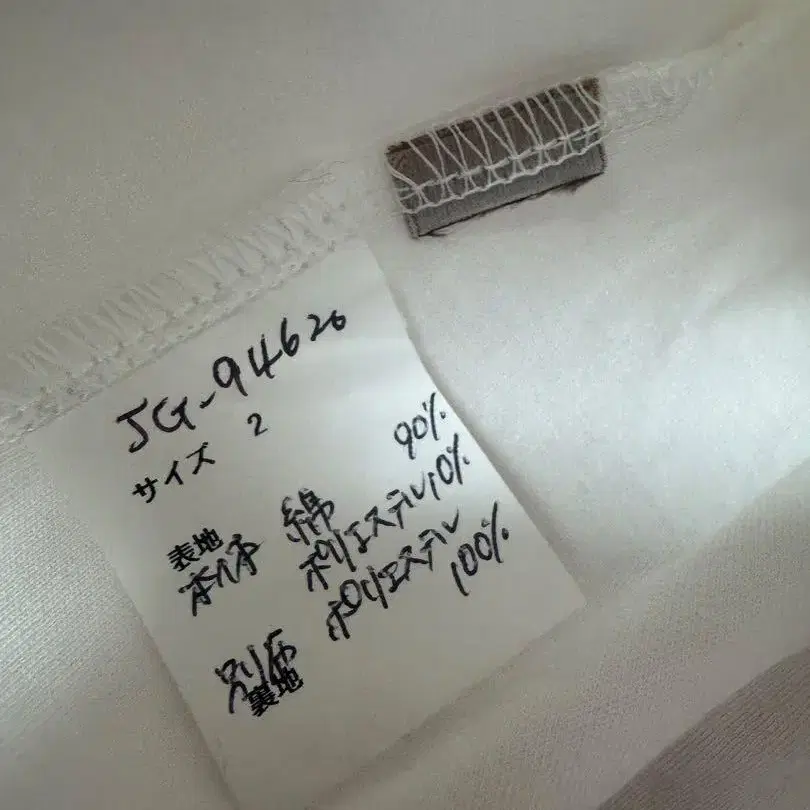 JG-94620
サイズ 2
表地
本体 綿 90%
ポリエステル10%
別布 ポリエステル 100%
裏地